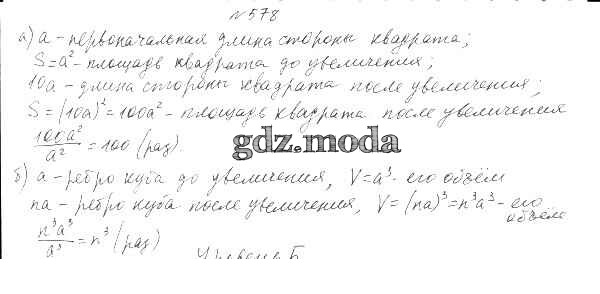 №578
а) а - первоначальная длина стороны квадрата;
S=a² - площадь квадрата до увеличения;
10а - длина стороны квадрата после увеличения;
S=(10a)²=100a² - площадь квадрата после увеличения
100a²/a² = 100 (раз).
gdz.moda
б) а - ребро куба до увеличения, V=a³ - его объём
na - ребро куба после увеличения, V=(na)³=n³a³ - его
объём
n³a³/a³ = n³ (раз)